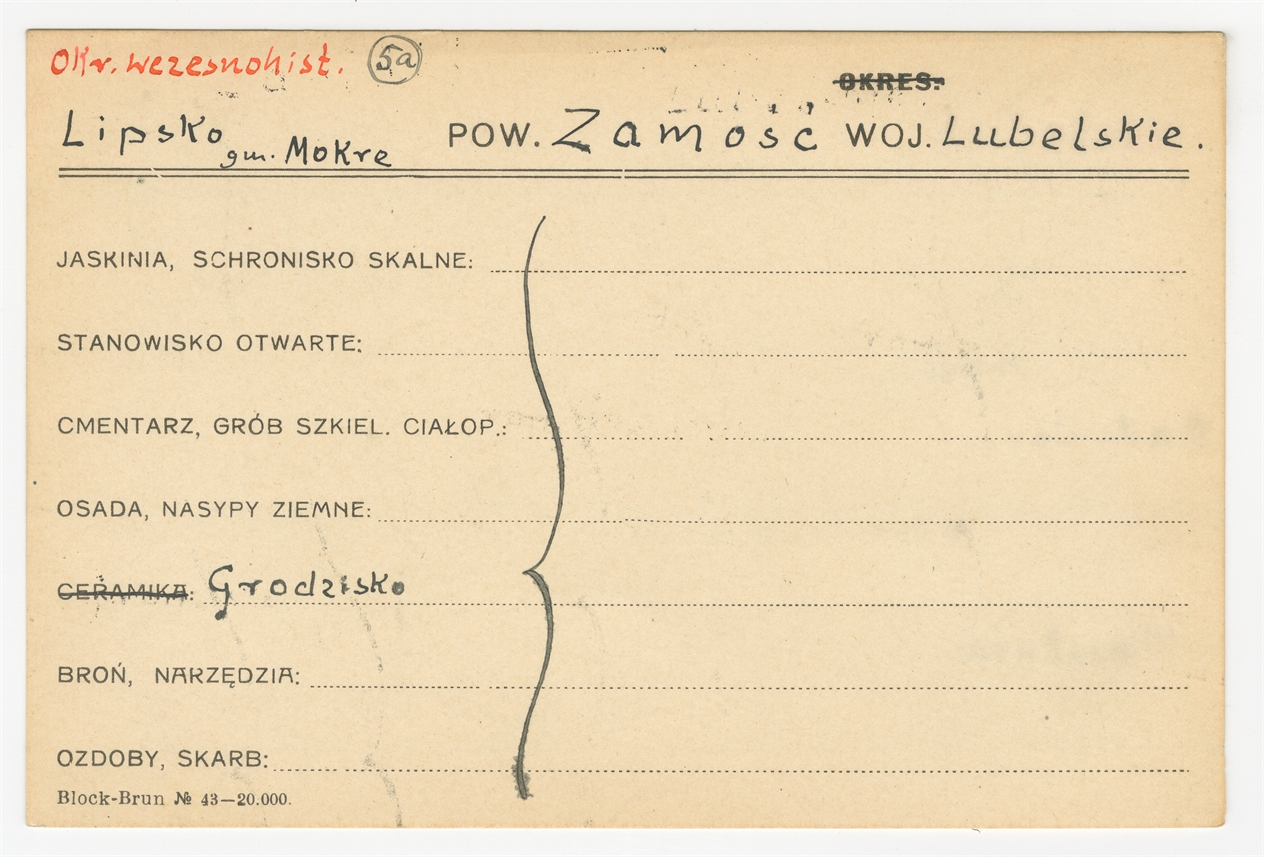 Okr. wczesnohist. 5a
OKRES:
Lipsko gm. Mokre POW. Zamość WOJ. Lubelskie.
JASKINIA, SCHRONISKO SKALNE:
STANOWISKO OTWARTE:
CMENTARZ, GRÓB SZKIEL. CIAŁOP.:
OSADA, NASYPY ZIEMNE:
CERAMIKA: Grodzisko
BROŃ, NARZĘDZIA:
OZDOBY, SKARB:
Block-Brun № 43—20.000.